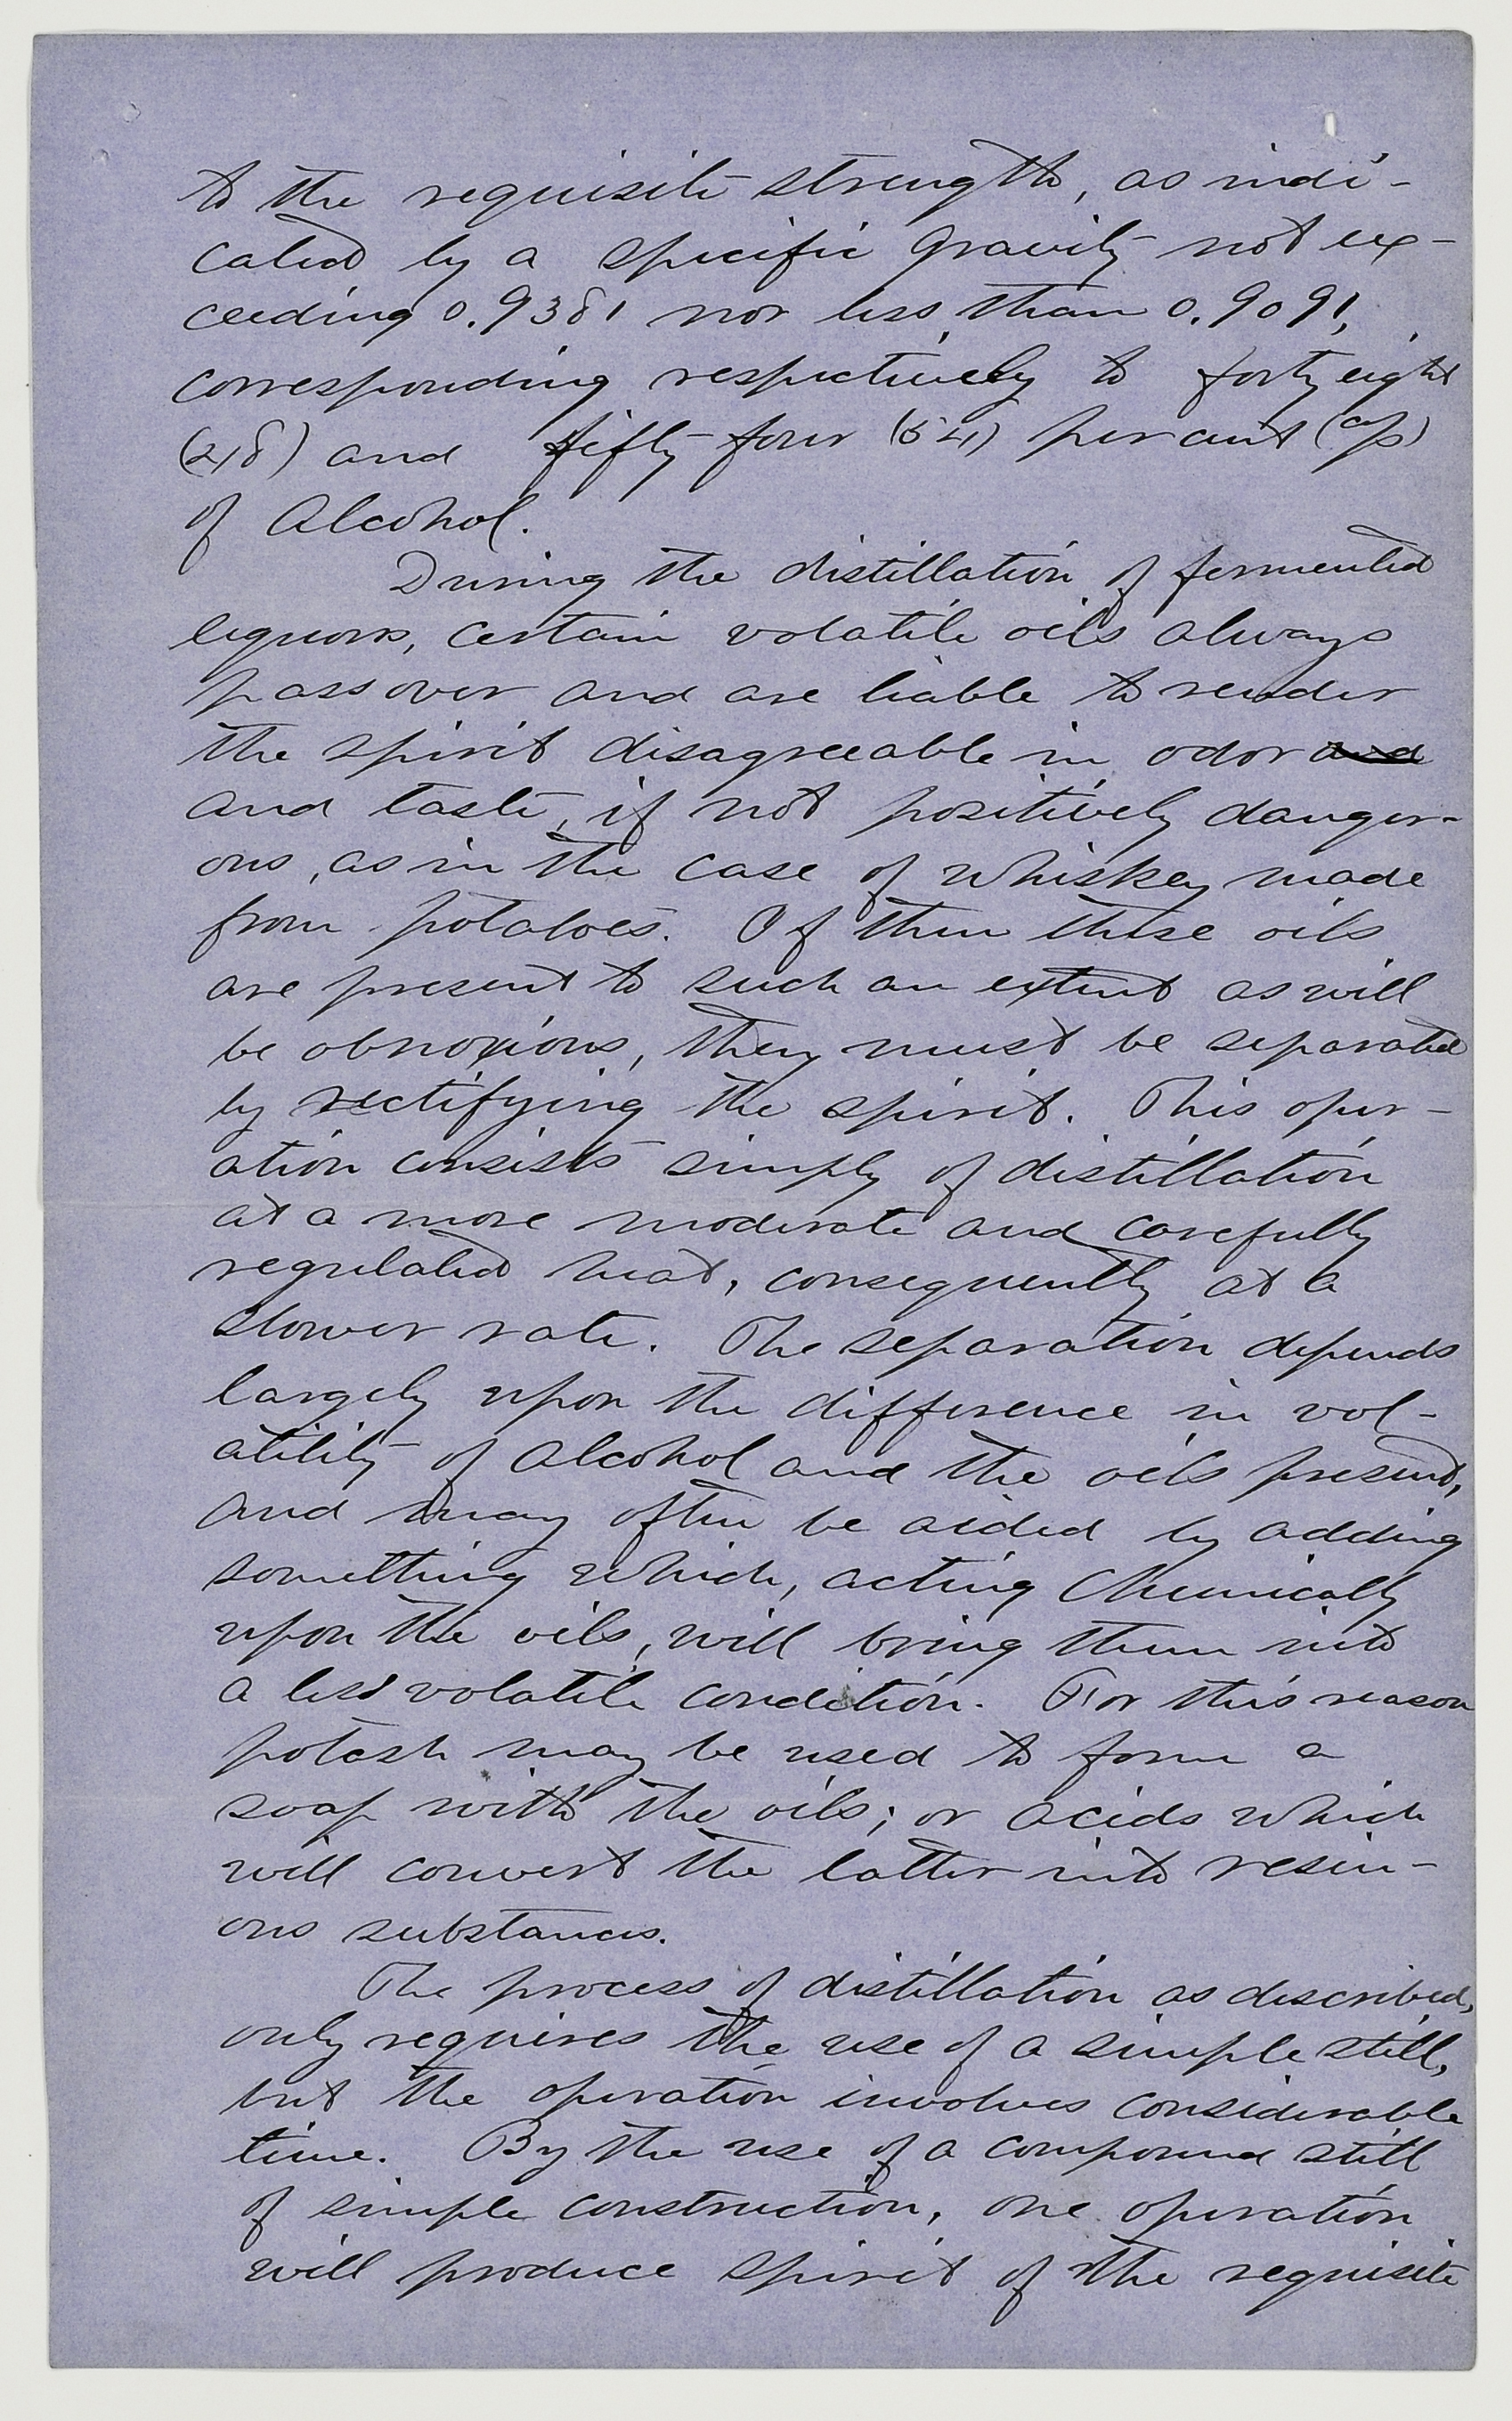 to the requisite strength, as indi-
cated by a specific gravity not ex-
ceeding 0.9381 nor less than 0.9091,
corresponding respectively to forty eight
(48) and fifty-four (54) per cent (%)
of Alcohol.
During the distillation of fermented
liquors, certain volatile oils always
pass over and are liable to render
the spirit disagreeable in odor and
and taste, if not positively danger-
ous, as in the case of whiskey made
from potatoes. If then these oils
are present to such an extent as will
be obnoxious, they must be separated
by rectifying the spirit. This oper-
ation consists simply of distillation
at a more moderate and carefully
regulated heat, consequently at a
slower rate. The separation depends
largely upon the difference in vol-
atility of alcohol and the oils present,
and may often be aided by adding
something which, acting Chemically
upon the oils, will bring them into
a less volatile condition. For this reason
potash may be used to form a
soap with the oils; or acids which
will convert the latter into resin-
ous substances.
The process of distillation as described,
only requires the use of a simple still,
but the operation involves considerable
time. By the use of a compound still
of simple construction, one operation
will produce spirit of the requisite